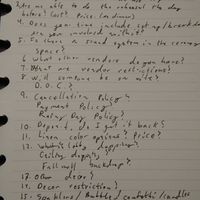 3. Are we able to do the rehearsal the day
before? Cost? Price. (in dinner)
4. Does your include set up/breakdown
are you involved with it?
5. Is there a sound system in the ceremony
space?
6. What other vendors do you have?
7. What are vendor restrictions?
8. Will someone be on site?
D.O.C.?
9. Cancellation Policy
Payment Policy
Rainy Day Policy?
10. Deposit, do I get it back?
11. Linen color options? price?
12. What's lobby draping?
Ceiling draping
Full wall backdrop?
13. Other decor?
14. Decor restriction?
15. Sparklers / Bubble / confetti / candles